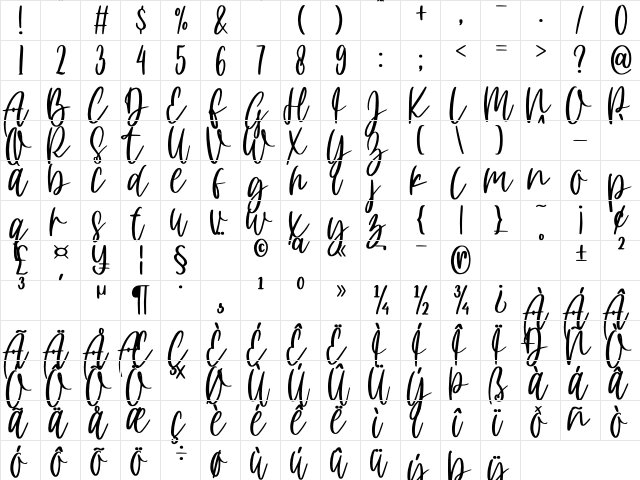 ! # $ % & ( ) + , - . / 0
1 2 3 4 5 6 7 8 9 : ; < = > ? @
A B C D E F G H I J K L M N O P
Q R S T U V W X Y Z ( \ ) _
a b c d e f g h i j k l m n o p
q r s t u v w x y z { | } ~ ¡ ¢
£ ¤ ¥ ¦ § © ª « ¬ ® ± ²
³ ´ µ ¶ · ¸ ¹ º » ¼ ½ ¾ ¿ À Á Â
Ã Ä Å Æ Ç È É Ê Ë Ì Í Î Ï Ð Ñ Ò
Ó Ô Õ Ö × Ø Ù Ú Û Ü Ý Þ ß à á â
ã ä å æ ç è é ê ë ì í î ï ð ñ ò
ó ô õ ö ÷ ø ù ú û ü ý þ ÿ